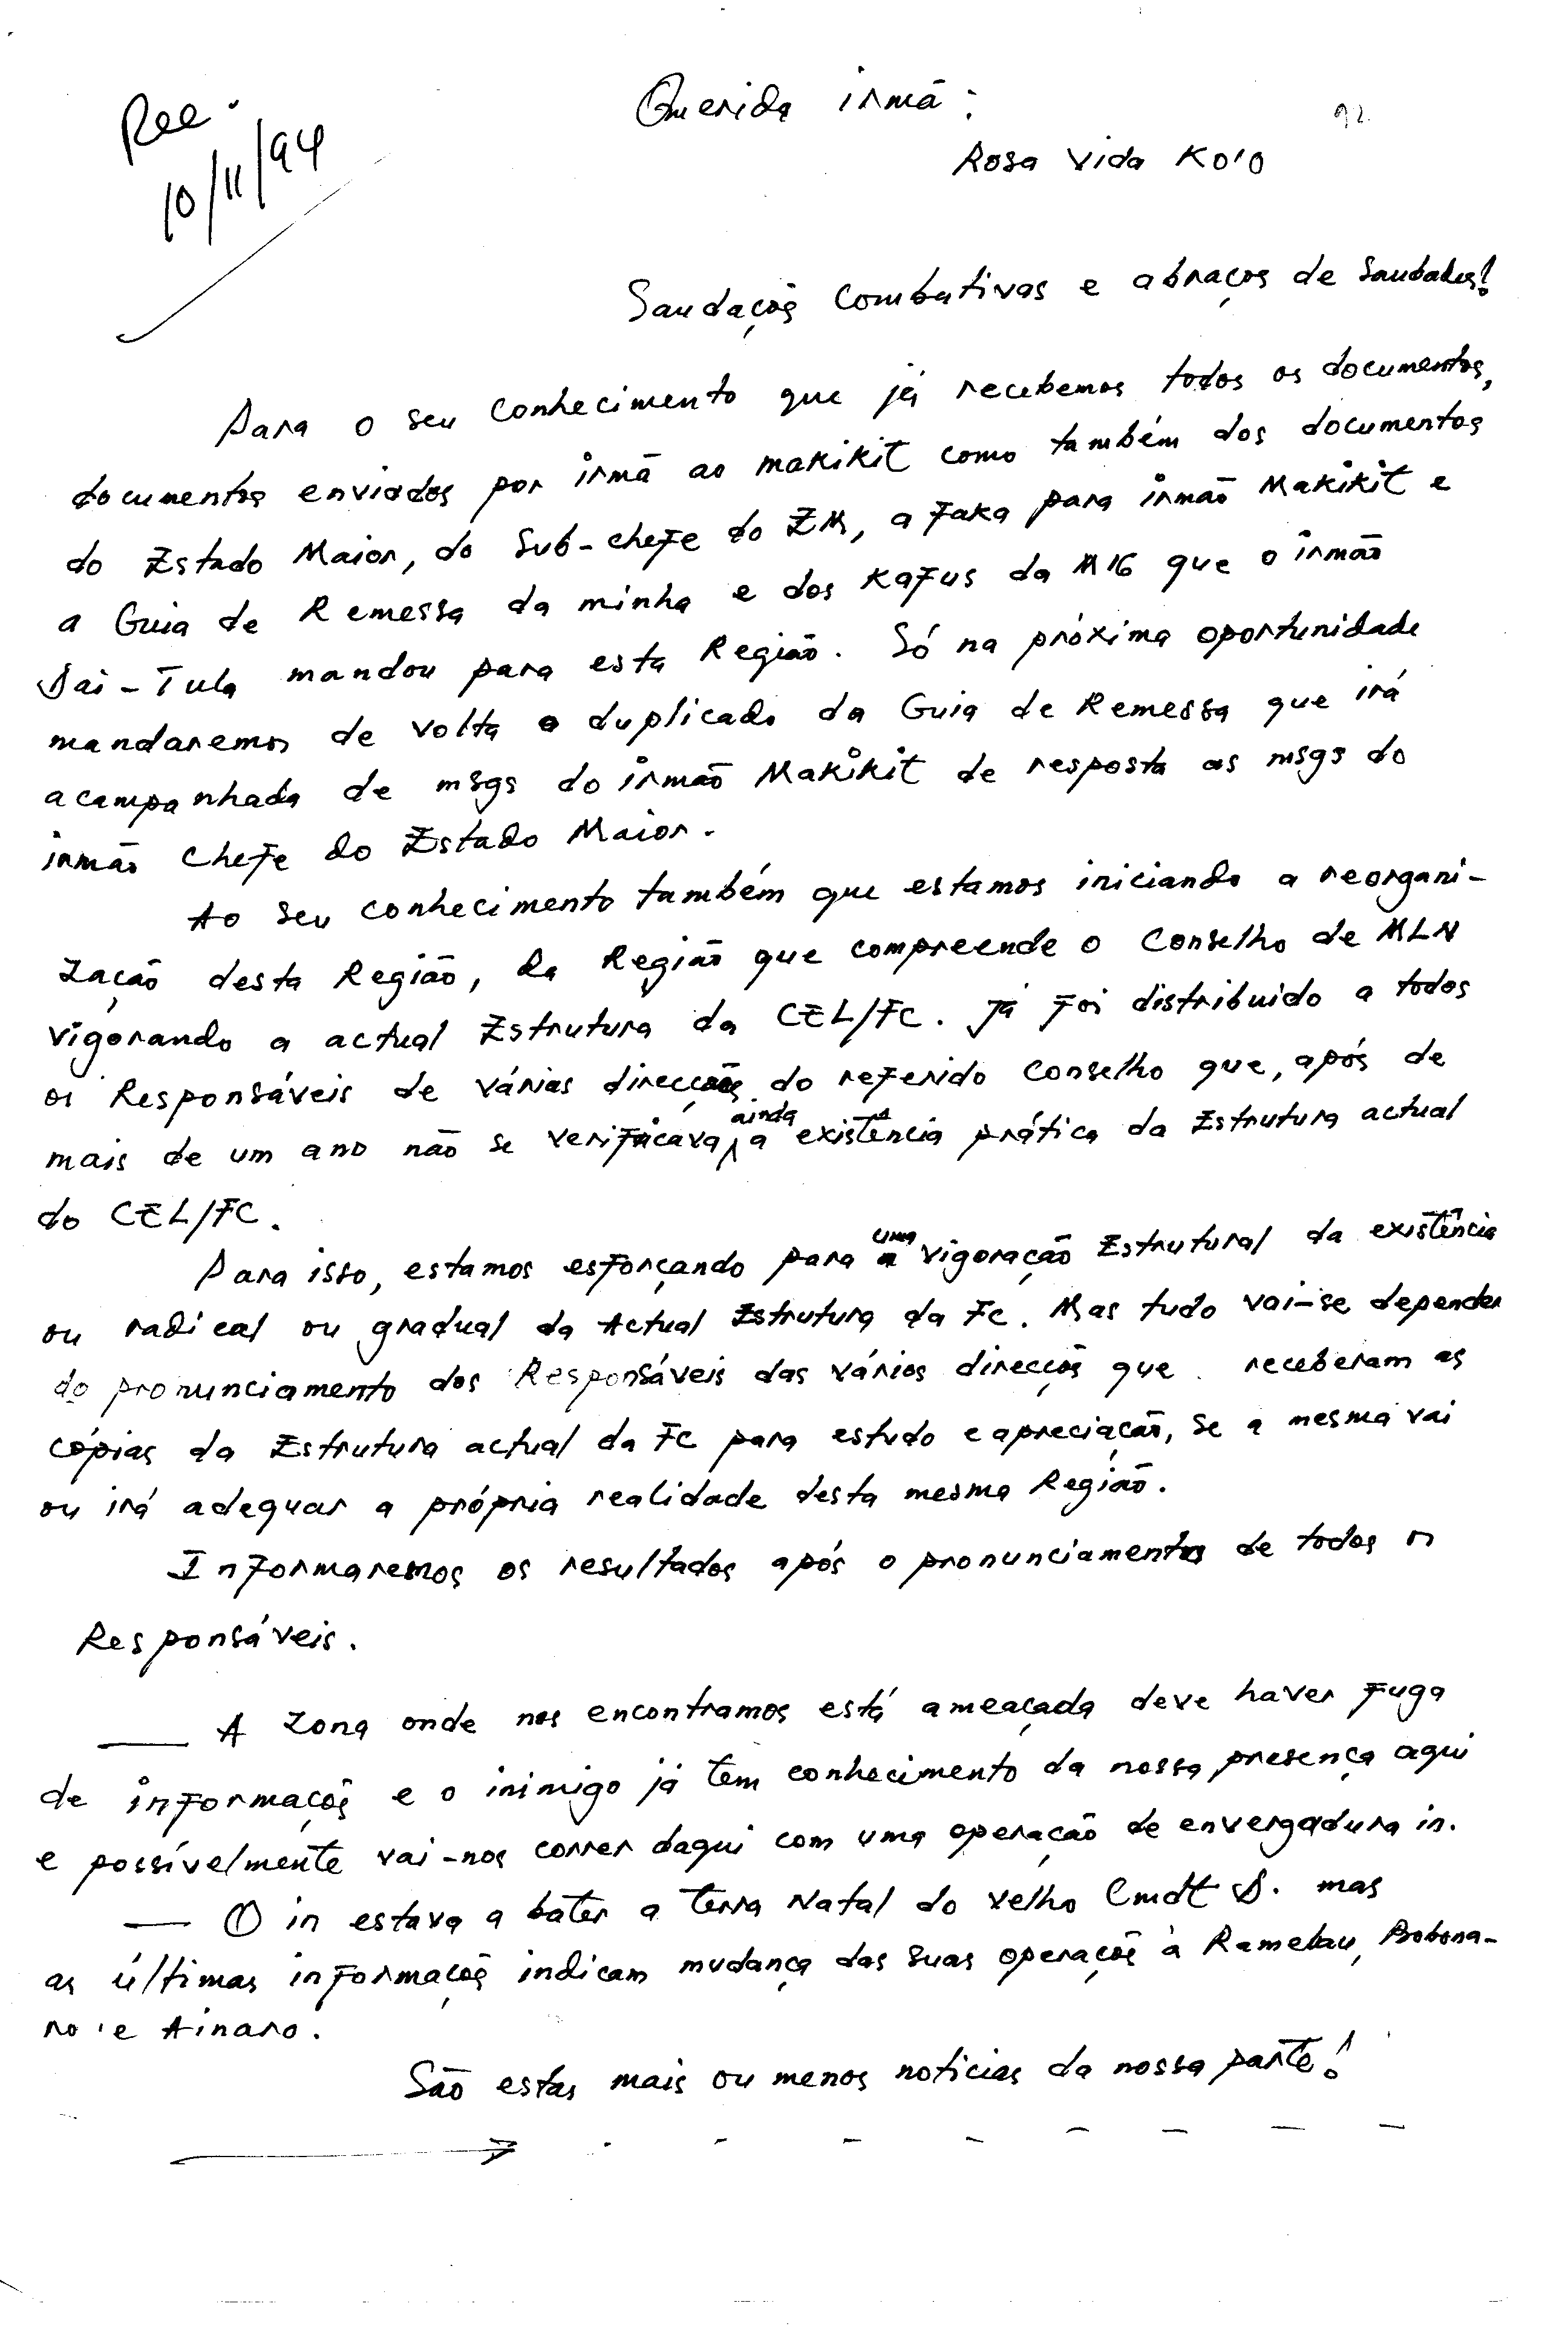 Querida irmã:
92
Rec.
10/11/94
Rosa Vida Ko'o
Saudaçõs Combativas e abraços de Saudades!
Para o seu conhecimento que já recebemos todos os documentos,
documentos enviados por irmã ao Makikit como também dos documentos
do Estado Maior, do Sub-chefe do EM, a Faka para irmão Makikit e
a Guia de Remessa da minha e dos Kafus da M16 que o irmão
Sai-Tula mandou para esta Região. Só na próxima oportunidade
mandaremos de volta o duplicado da Guia de Remessa que irá
acompanhada de msgs do irmão Makikit de resposta as msgs do
irmão Chefe do Estado Maior.
Ao seu conhecimento também que estamos iniciando a reorgani-
zação desta Região, da Região que compreende o Conselho de MLN
vigorando a actual Estrutura da CEL/FC. Já foi distribuido a todos
os Responsáveis de várias direcções do referido Conselho que, após de
mais de um ano não se verificava ainda a existência prática da Estrutura actual
do CEL/FC.
Para isso, estamos esforçando para uma vigoração Estrutural da existência
ou radical ou gradual da Actual Estrutura da FC. Mas tudo vai-se depender
do pronunciamento dos Responsáveis das vários direcçõs que receberam as
cópias da Estrutura actual da FC para estudo e apreciação, se a mesma vai
ou irá adequar a própria realidade desta mesma Região.
Informaremos os resultados após o pronunciamento de todos os
Responsáveis.
— A zona onde nos encontramos está ameaçada deve haver fuga
de informaçõs e o inimigo já tem conhecimento da nossa presença aqui
e possívelmente vai-nos correr daqui com uma operação de envergadura in.
— O in estava a bater a terra Natal do velho Cmdt S. mas
as últimas informaçõs indicam mudança das suas operaçõs à Ramelau, Bobona-
ro e Ainaro.
São estas mais ou menos noticias da nossa parte!